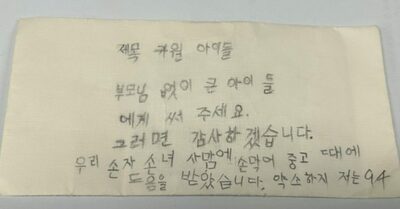 제목 귀월 아이들
부모님 없이 큰 아이들
에게 써 주세요.
그러면 감사하겠습니다.
우리 손자 손녀 사맘에 손막어 중고 때에
도음을 받았습니다. 약소하지 저는 94